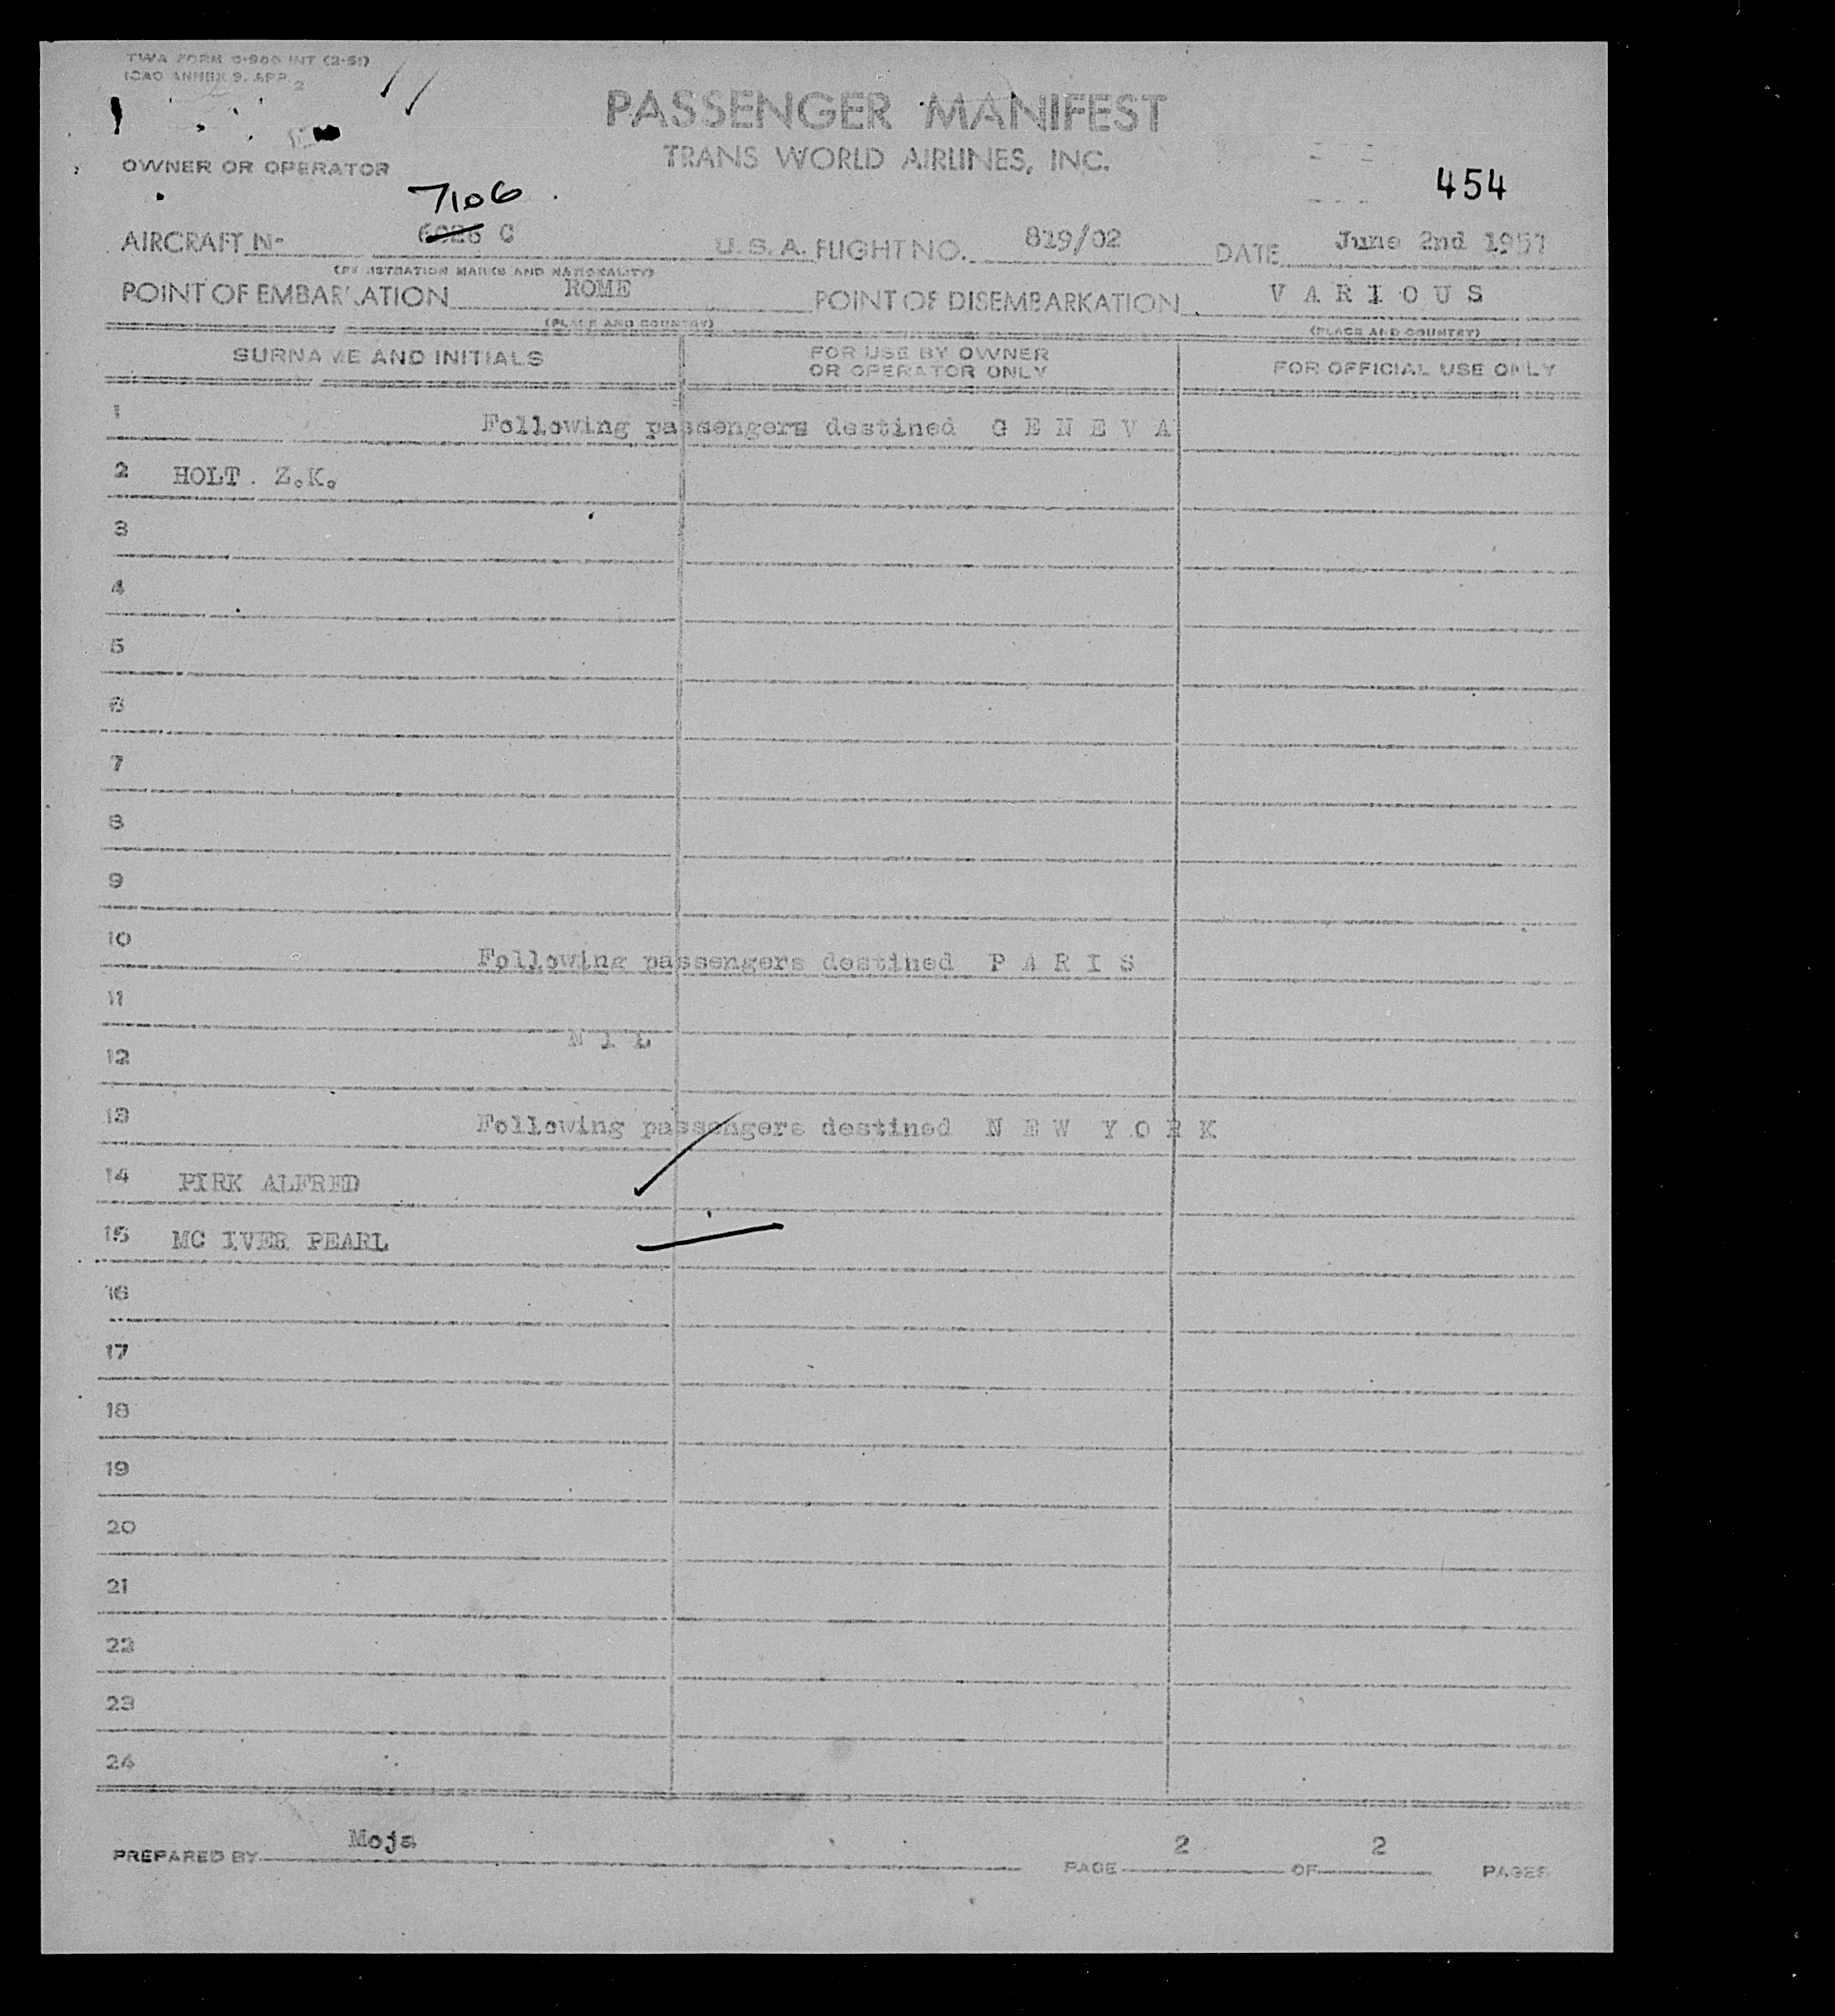 TWA FORM 0-900 INT (2-51)
ICAO ANNEX 9. APP. 2
PASSENGER MANIFEST
TRANS WORLD AIRLINES, INC.
OWNER OR OPERATOR
454
7106
AIRCRAFT Nº 6026 C U. S. A. FLIGHT NO. 819/02 DATE June 2nd 1957
(REGISTRATION MARKS AND NATIONALITY)
POINT OF EMBARKATION ROME POINT OF DISEMBARKATION V A R I O U S
(PLACE AND COUNTRY) (PLACE AND COUNTRY)
SURNAME AND INITIALS FOR USE BY OWNER OR OPERATOR ONLY FOR OFFICIAL USE ONLY
1 Following passengers destined G E N E V A
2 HOLT . Z.K.
3
4
5
6
7
8
9
10 Following passengers destined P A R I S
11
N I L
12
13 Following passengers destined N E W Y O R K
14 PIRK ALFRED
15 MC IVER PEARL
16
17
18
19
20
21
22
23
24
PREPARED BY Moja PAGE 2 OF 2 PAGES